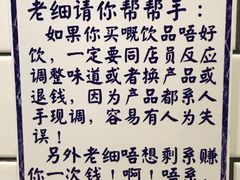 老细请你帮帮手：
如果你买嘅饮品唔好
饮，一定要同店员反应
调整味道或者换产品或
退钱，因为产品都系人
手现调，容易有人为失
误！
另外老细唔想剩系赚
你一次钱！啊！唔系，